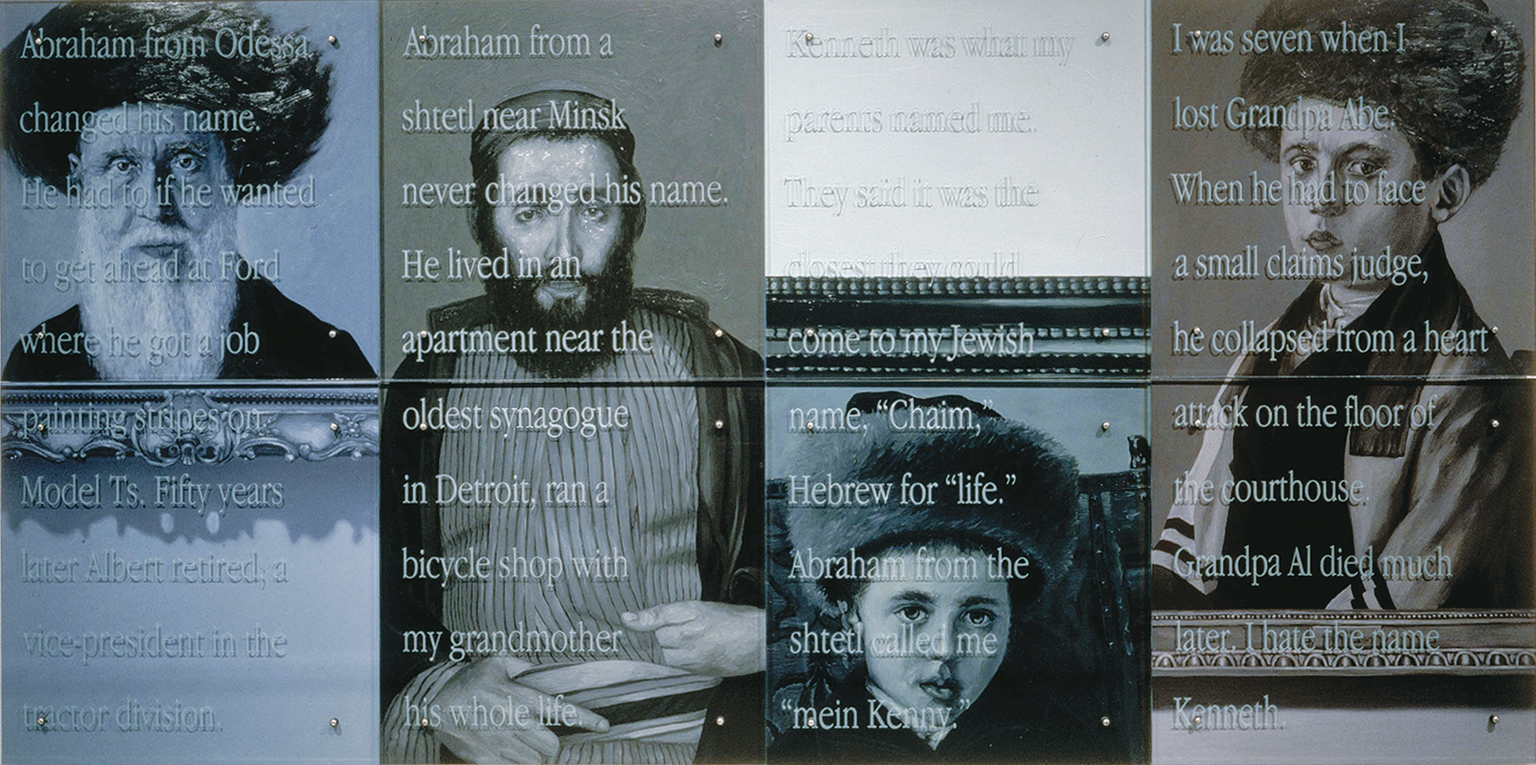 Abraham from Odessa
changed his name.
He had to if he wanted
to get ahead at Ford
where he got a job
painting stripes on
Model Ts. Fifty years
later Albert retired; a
vice-president in the
tractor division.
Abraham from a
shtetl near Minsk
never changed his name.
He lived in an
apartment near the
oldest synagogue
in Detroit, ran a
bicycle shop with
my grandmother
his whole life.
Kenneth was what my
parents named me.
They said it was the
closest they could
come to my Jewish
name, “Chaim,”
Hebrew for “life.”
Abraham from the
shtetl called me
“mein Kenny.”
I was seven when I
lost Grandpa Abe.
When he had to face
a small claims judge,
he collapsed from a heart
attack on the floor of
the courthouse.
Grandpa Al died much
later. I hate the name
Kenneth.